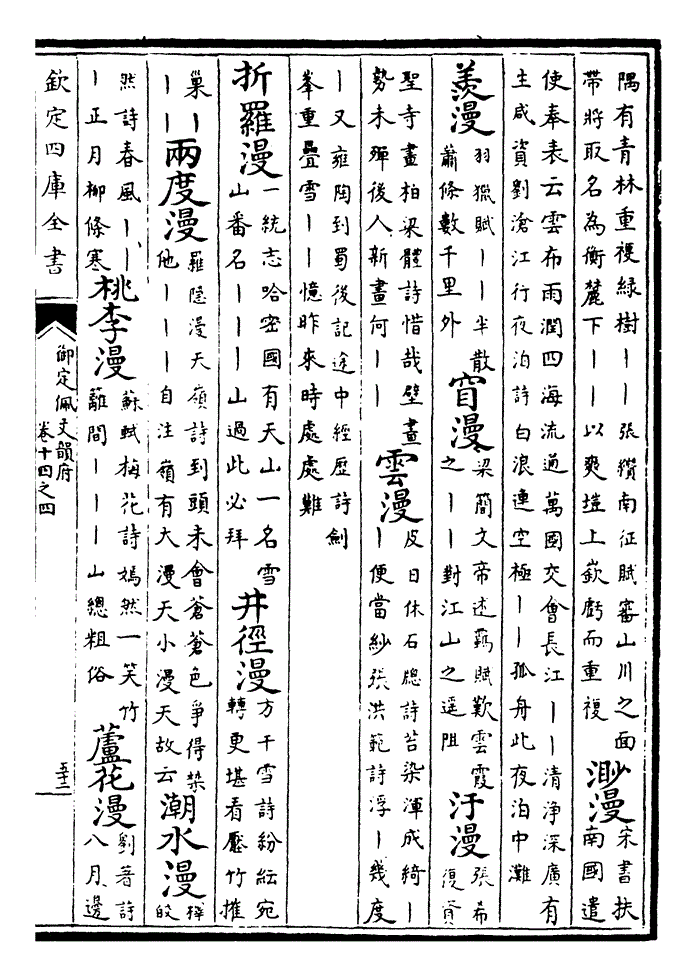 隅有青林重複緑樹丨丨張纉南征賦審山川之面
帶將取名為衡麓下丨丨以爽塏上嶔虧而重複
渺漫
宋書扶
南國遣
使奉表云雲布雨潤四海流通萬國交會長江丨丨清浄深廣有
生咸資劉滄江行夜泊詩白浪連空極丨丨孤舟此夜泊中灘
羨漫
羽獵賦丨丨半散
蕭條數千里外
窅漫
梁簡文帝述羈賦歎雲霞
之丨丨對江山之遥阻
汙漫
張希
復贅
聖寺畫柏梁體詩惜哉壁畫
勢未殫後人新畫何丨丨
雲漫
皮日休石牕詩苔染渾成綺丨
丨便當紗張洪範詩浮丨幾度
丨又雍陶到蜀後記途中經歷詩劍
峯重疊雪丨丨憶昨來時處處難
折羅漫
一統志哈密國有天山一名雪
山番名丨丨丨山過此必拜
井徑漫
方干雪詩紛紜宛
轉更堪看壓竹摧
巢丨
丨丨
兩度漫
羅隱漫天嶺詩到頭未會蒼蒼色争得禁
他丨丨丨自注嶺有大漫天小漫天故云
潮水漫
釋
皎
然詩春風丨丨
丨正月柳條寒
桃李漫
蘇軾梅花詩嫣然一笑竹
籬間丨丨丨山總粗俗
蘆花漫
劉著詩
八月邊
欽定四庫全書
御定佩文韻府
卷十四之四
五十二